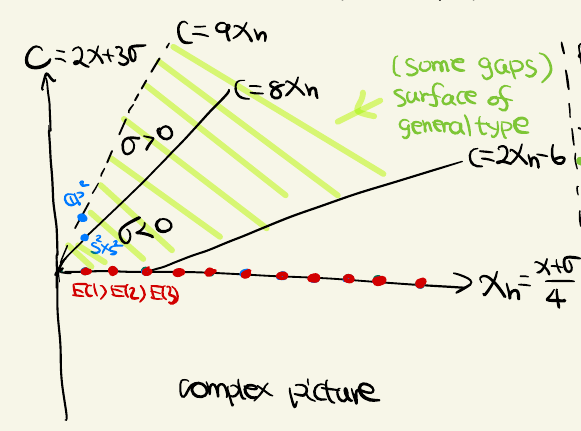 C = 9χₕ
C = 2χ+3σ
C = 8χₕ
(some gaps)
surface of
general type
σ>0
C = 2χₕ-6
ℂP²
σ<0
S²×S²
E(1) E(2) E(3)
χₕ = χ+σ
4
complex picture